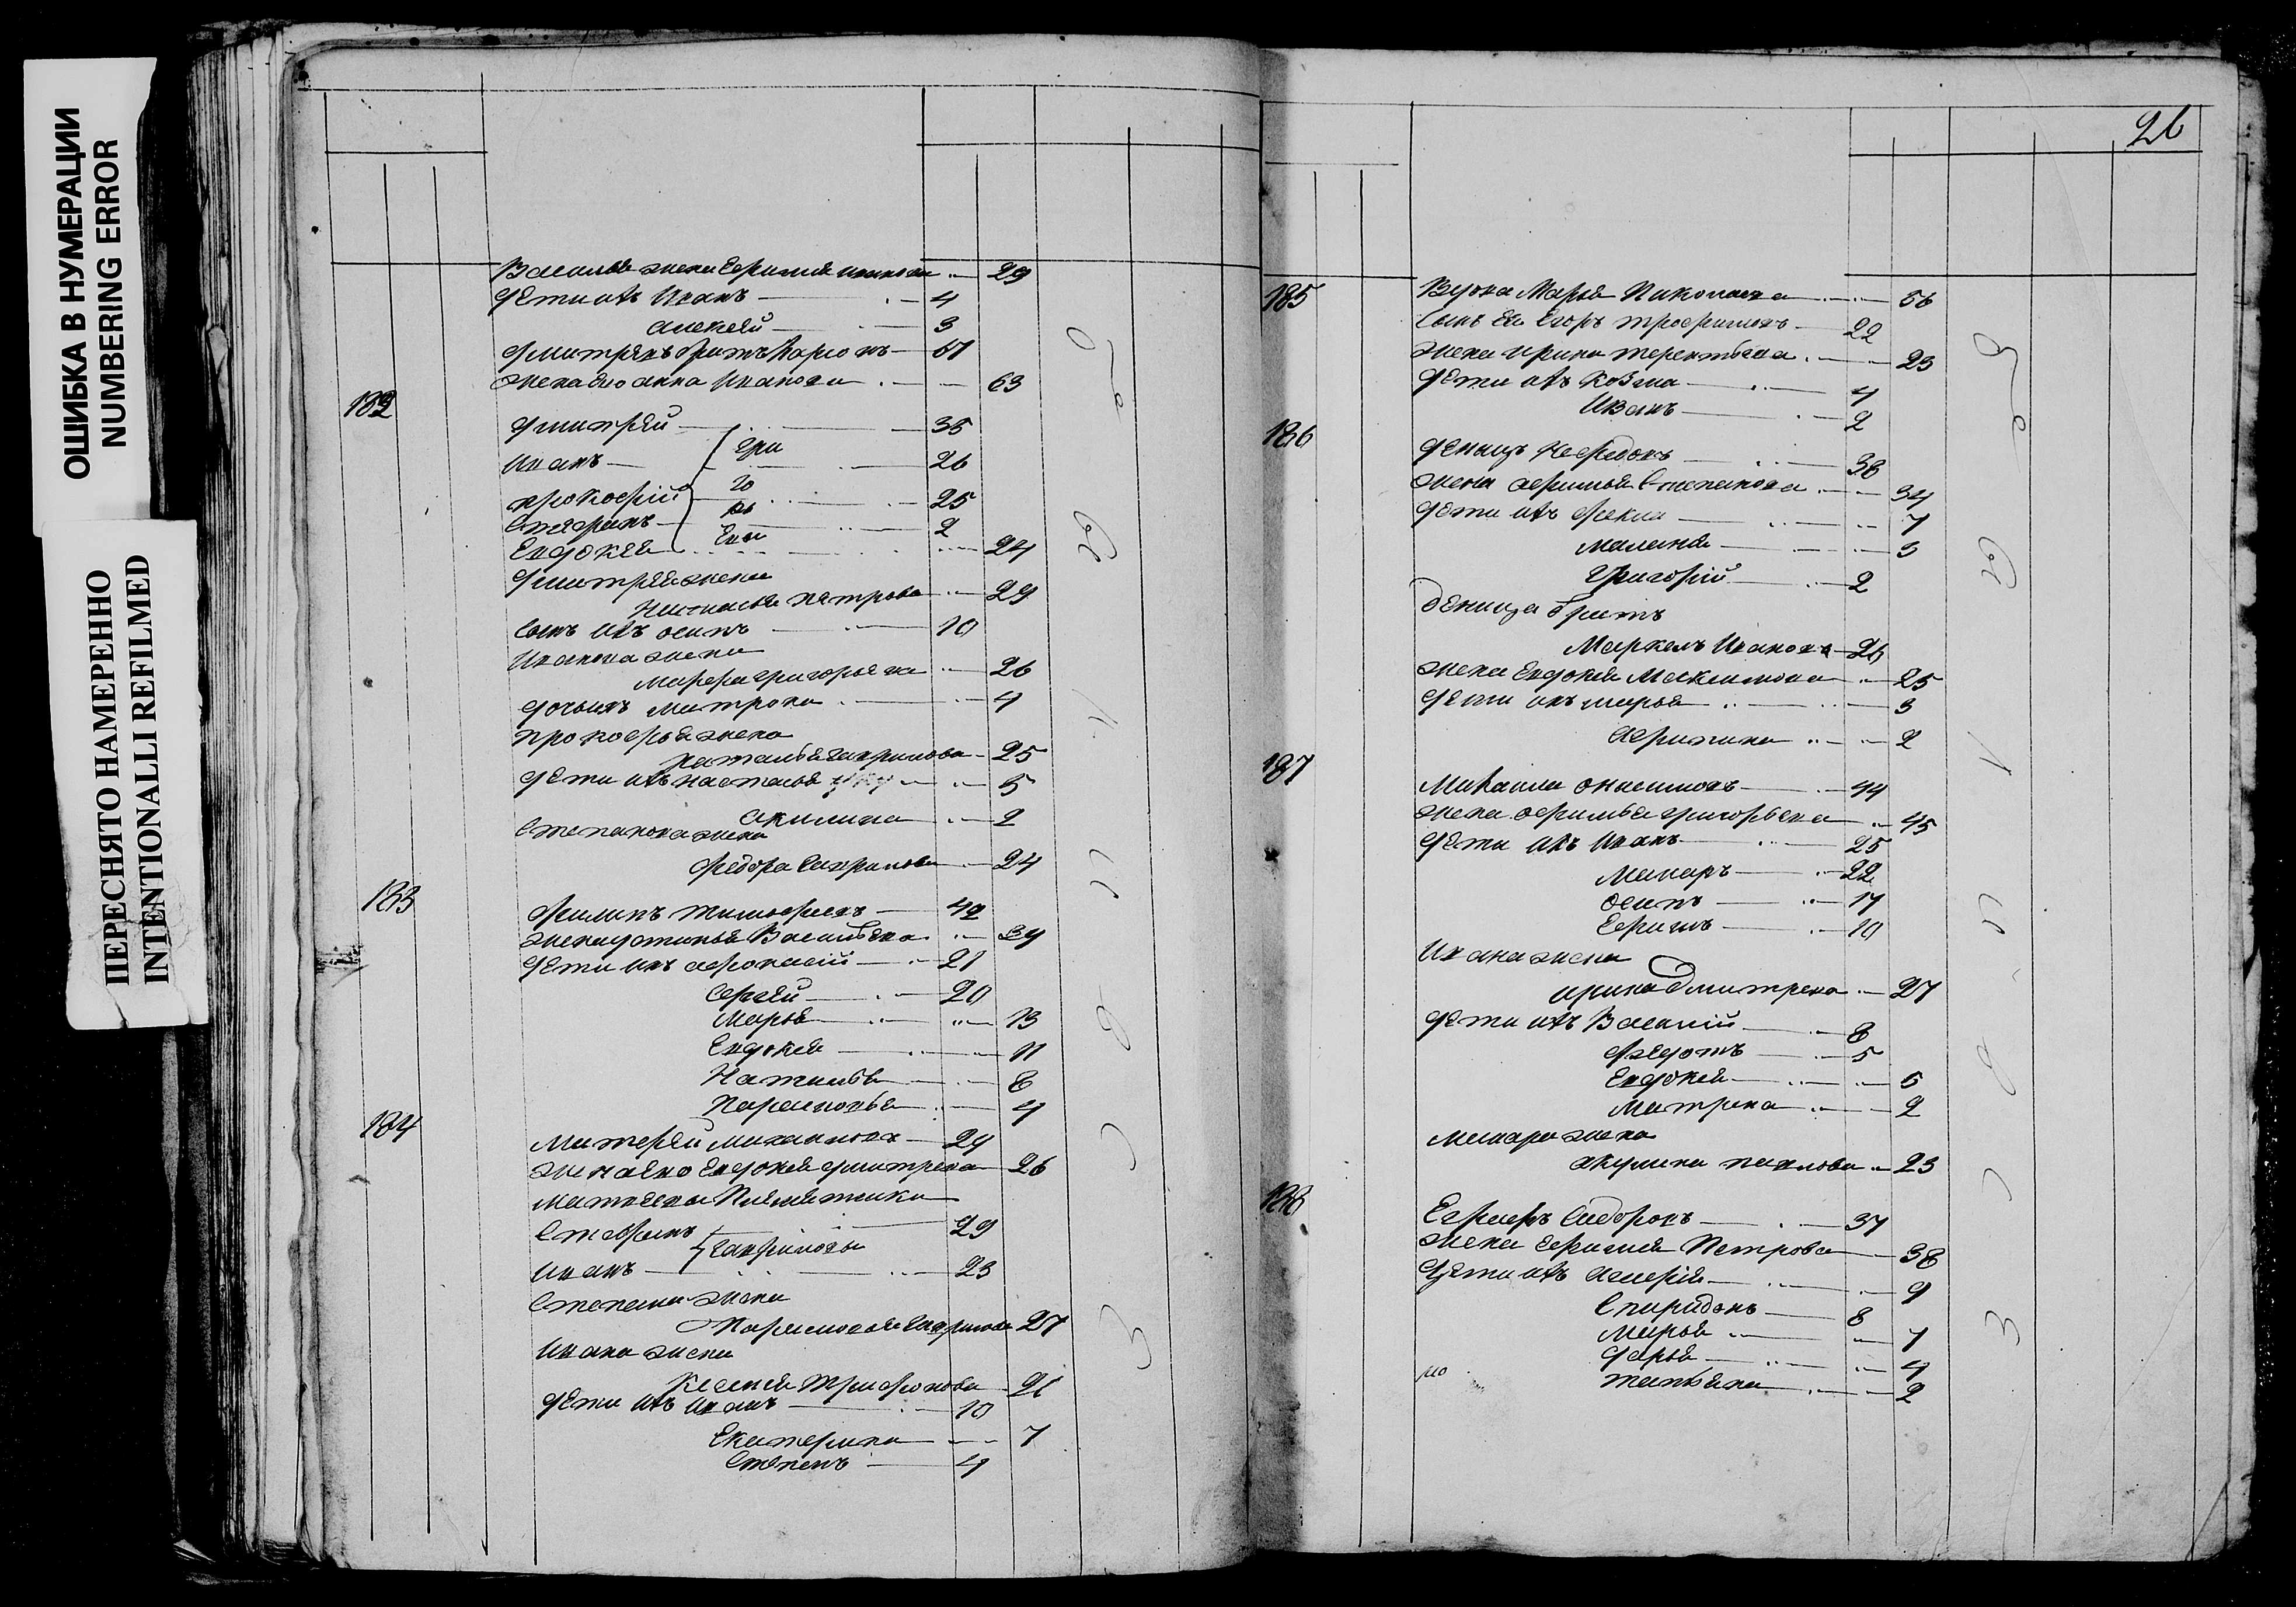 ОШИБКА В НУМЕРАЦИИ
NUMBERING ERROR
ПЕРЕСНЯТО НАМЕРЕННО
INTENTIONALLI REFILMED
Василья жена Ефимия Иванова 29
Дети ихъ Иванъ 4
Алексей 3
Дмитрявъ братъ Ларионъ 61
Жена его Анна Иванова 63
182
Дмитрей 35
Иванъ 26
Прокофий 25
Стефанъ 2
Евдокея 24
Дмитрея жена
Настасья Петрова 29
Сынъ ихъ Осипъ 10
Иванова жена
Марфа Григорьева 26
Дочь ихъ Матрона 4
Прокофья жена
Наталья Гаврилова 25
Дети ихъ Настасья 5
Акилина 2
Степанова жена
Федора Гаврилова 24
183
Филипъ Тимофеевъ 42
Жена Устинья Васильева 39
Дети ихъ Афонасий 21
Сергей 20
Марья 13
Евдокея 11
Наталья 8
Парасковья 4
184
Матвей Михаиловъ 29
Жена ево Евдокея Дмитрева 26
Матвеевы Племянники
Стефанъ 29
Гавриловы
Иванъ 23
Степана жена
Парасковья Гаврилова 27
Ивана жена
Ксения Трифонова 21
Дети ихъ Иванъ 10
Екатерина 7
Степанъ 4
26
185
Вдова Марья Николаева 56
Сынъ ея Егоръ Трофимовъ 22
Жена Ирина Терентьева 23
Дети ихъ Козма 4
Иванъ 2
186
Денисъ Нефедовъ 38
Жена Афимья Степанова 34
Дети ихъ Фекла 7
Маланья 3
Григорий 2
Дениса братъ
Маркелъ Ивановъ 26
Жена Евдокея Максимова 25
Дети ихъ Марья 3
Афимья 2
187
Михаила Онисимовъ 44
Жена Афимья Григорьева 45
Дети ихъ Иванъ 25
Макаръ 22
Осипъ 17
Ефимъ 10
Ивана жена
Ирина Дмитрева 27
Дети ихъ Василий 8
Федотъ 5
Евдокея 5
Матрена 2
Макара жена
Акулина Павлова 23
188
Сидоровъ 37
Жена Ефимия Петрова 38
Дети ихъ 9
Спиридонъ 8
Марья 7
Дарья 4
Татьяна 2